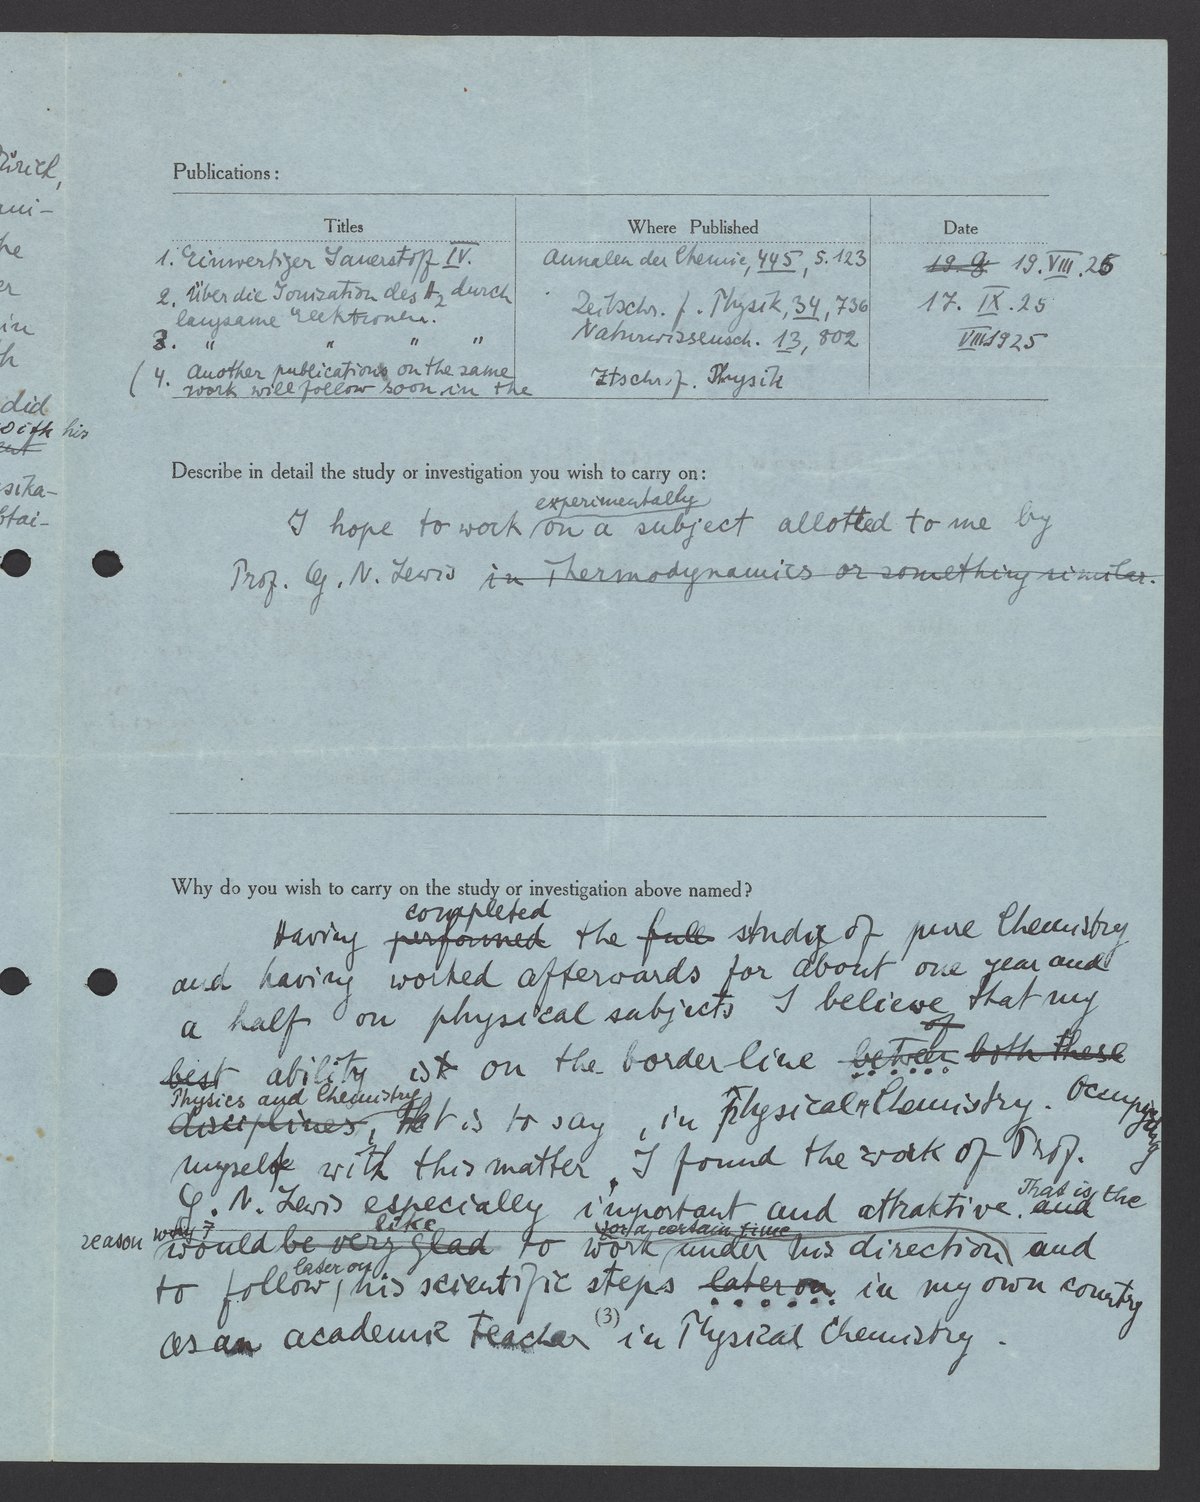 Publications:
Titles Where Published Date
1. Einwertiger Sauerstoff IV. Annalen der Chemie, 445, S. 123 19. 9 19. VIII. 25
2. Über die Ionization des H2 durch Zeitschr. f. Physik, 34, 736 17. IX. 25
langsame Elektronen.
3. " " " " Naturwissensch. 13, 802 VIII 1925
(4. Another publication on the same Ztschr. f. Physik
work will follow soon in the
Describe in detail the study or investigation you wish to carry on:
experimentally
I hope to work on a subject allotted to me by
Prof. G. N. Lewis in Thermodynamics or something similar.
Why do you wish to carry on the study or investigation above named?
completed
Having performed the full study of pure Chemistry
and having worked afterwards for about one year and
a half on physical subjects I believe that my
of
best ability is on the borderline between both these
Physics and Chemistry
disciplines, that is to say, in Physical Chemistry. Occupying
myself with this matter, I found the work of Prof.
That is the
G. N. Lewis especially important and attraktive. and
reason why I like for a certain time
would be very glad to work under his direction and
later on
to follow his scientific steps later on in my own country
as an academic teacher in Physical Chemistry.
(3)
Zürich,
did
with his